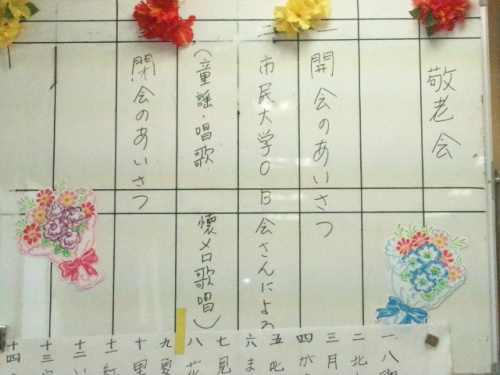 敬老会
一 開会のあいさつ
一 市民大学OB会さんによる
(童謡・唱歌 懐メロ歌唱)
閉会のあいさつ
一 八
二 北
三 月
四 が
五 叱
六 ま
七 見
八 花
九 憂
十 里
十一
十二
十三
十四